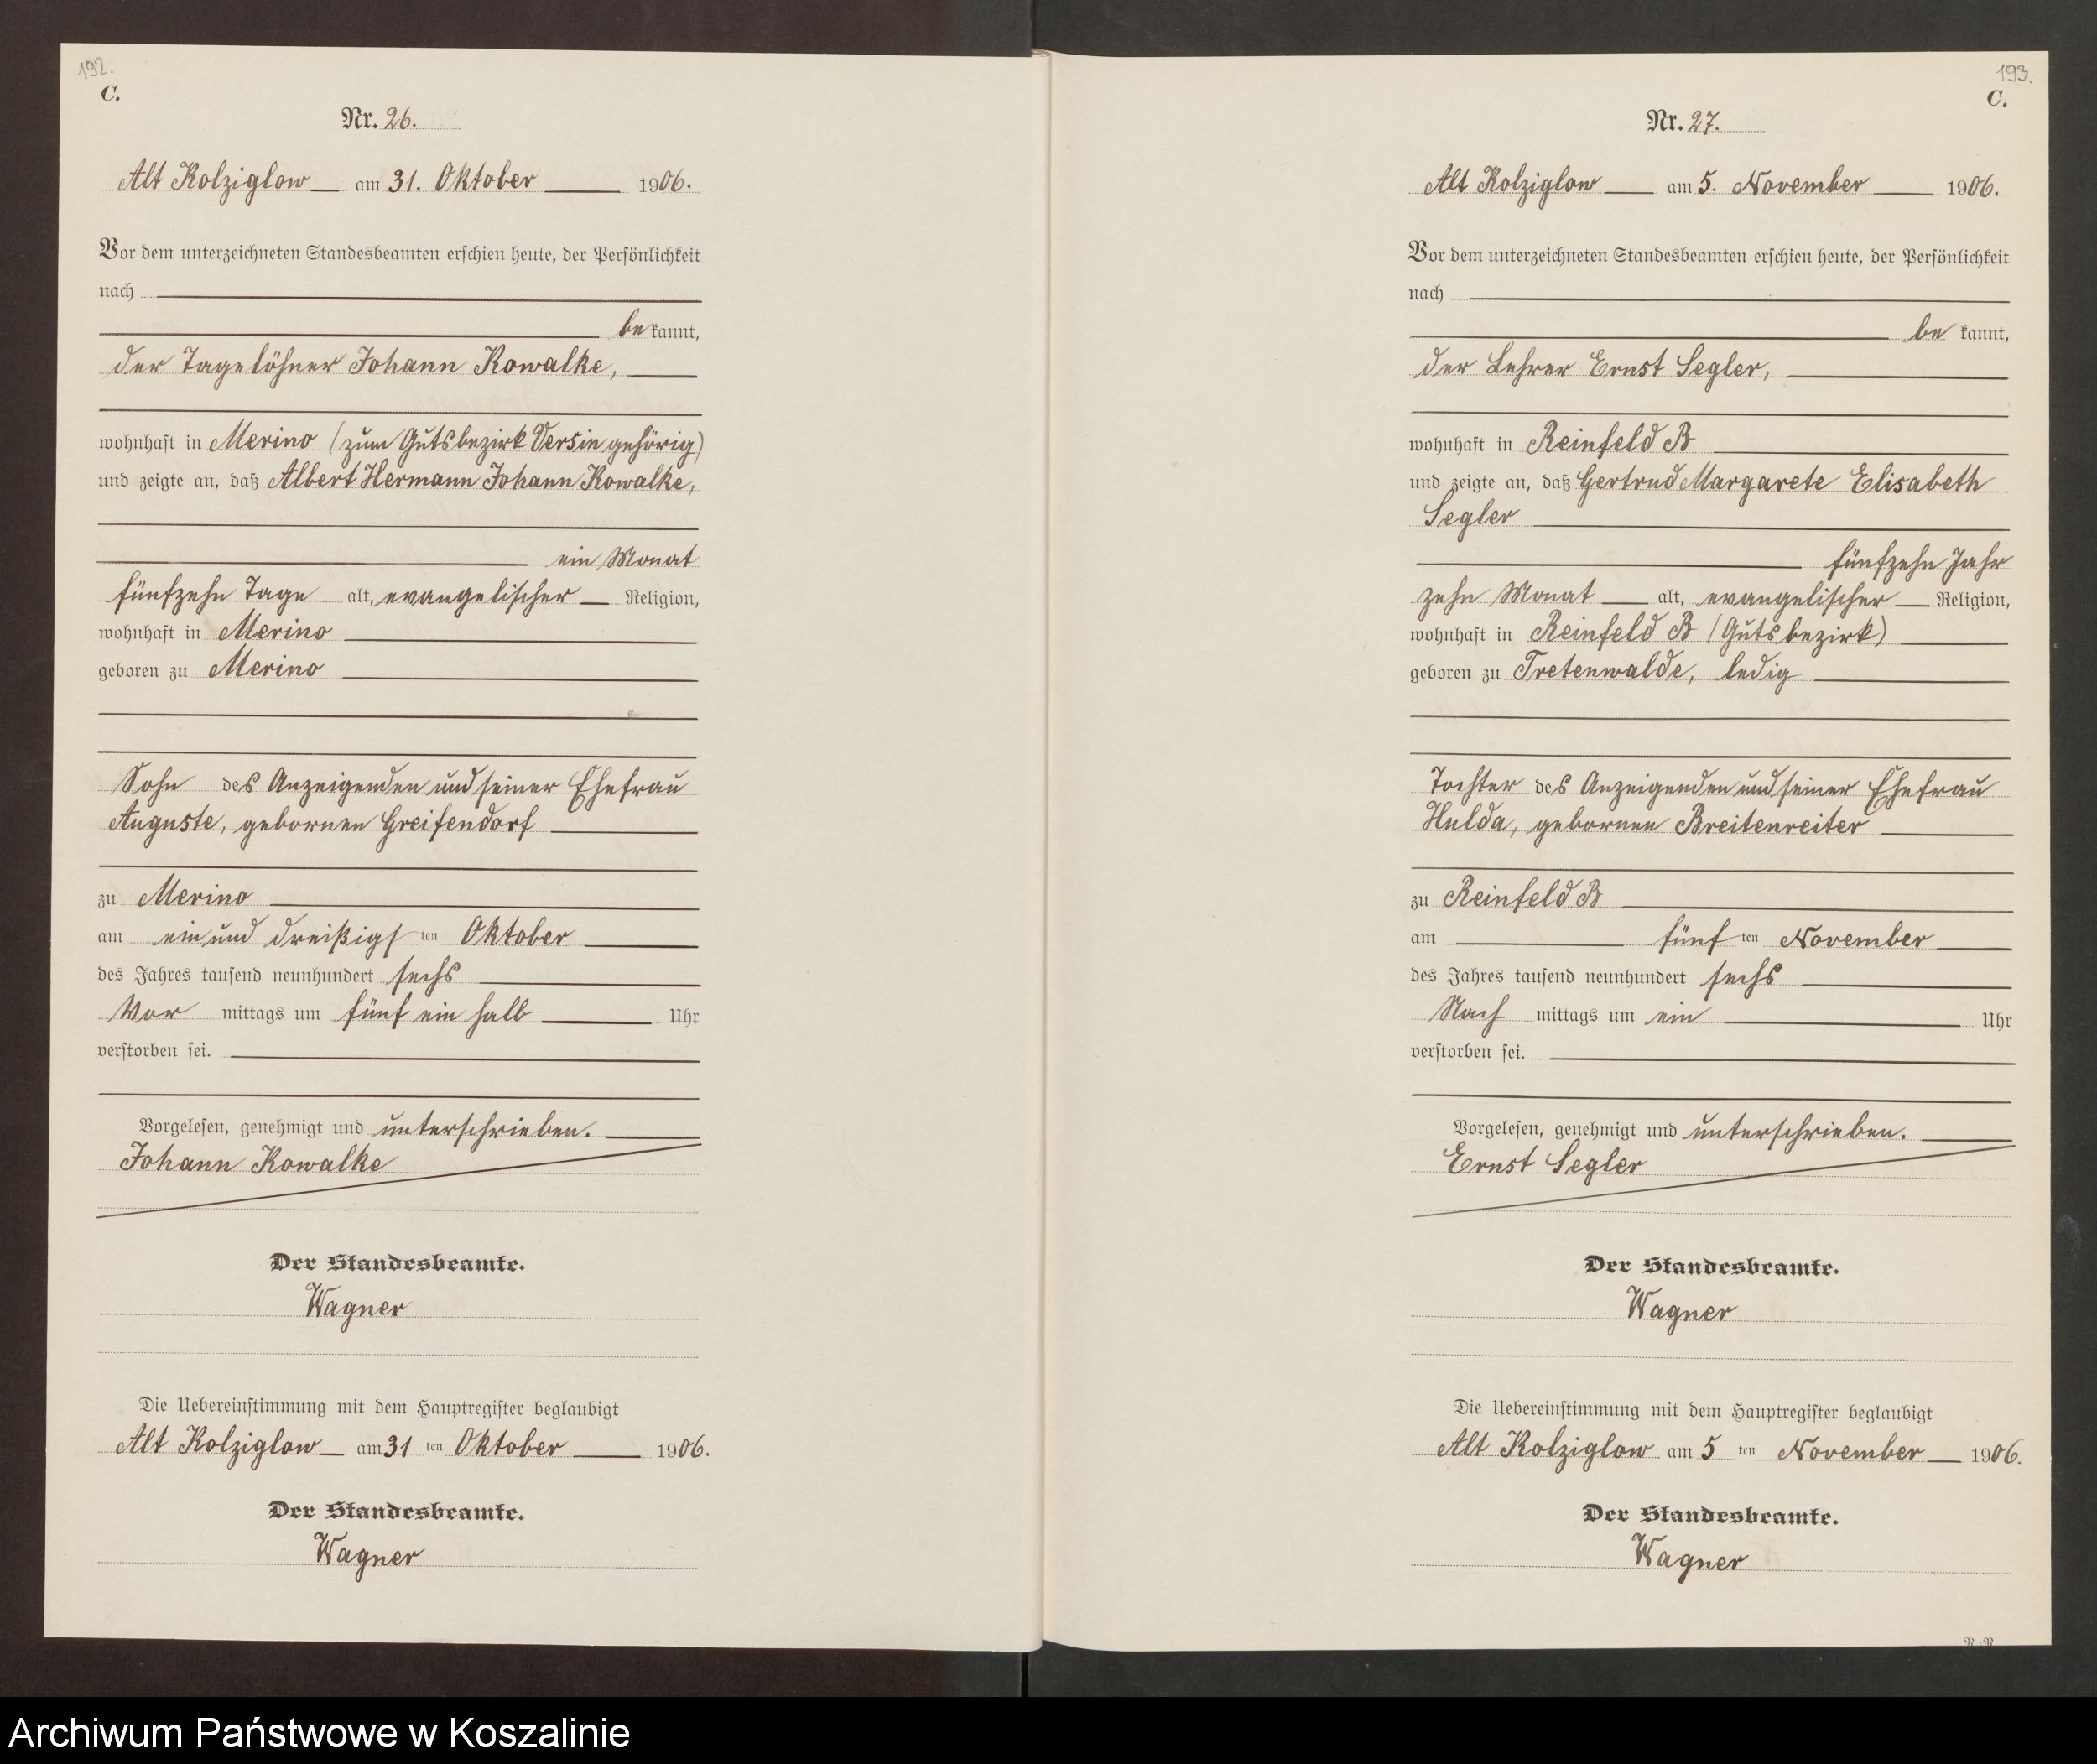 192.
C.
Nr. 26.
Alt Kolziglow am 31. Oktober 1906.
Vor dem unterzeichneten Standesbeamten erschien heute, der Persönlichkeit
nach
be kannt,
der Tagelöhner Johann Kowalke,
wohnhaft in Merino (zum Gutsbezirk Versin gehörig)
und zeigte an, daß Albert Hermann Johann Kowalke,
ein Monat
fünfzehn Tage alt, evangelischer Religion,
wohnhaft in Merino
geboren zu Merino
Sohn des Anzeigenden und seiner Ehefrau
Auguste, gebornen Greifendorf
zu Merino
am ein und dreißigs ten Oktober
des Jahres tausend neunhundert sechs
Vor mittags um fünf ein halb Uhr
verstorben sei.
Vorgelesen, genehmigt und unterschrieben.
Johann Kowalke
Der Standesbeamte.
Wagner
Die Uebereinstimmung mit dem Hauptregister beglaubigt
Alt Kolziglow am 31 ten Oktober 1906.
Der Standesbeamte.
Wagner
193.
C.
Nr. 27.
Alt Kolziglow am 5. November 1906.
Vor dem unterzeichneten Standesbeamten erschien heute, der Persönlichkeit
nach
be kannt,
der Lehrer Ernst Segler,
wohnhaft in Reinfeld B
und zeigte an, daß Gertrud Margarete Elisabeth
Segler
fünfzehn Jahr
zehn Monat alt, evangelischer Religion,
wohnhaft in Reinfeld B (Gutsbezirk)
geboren zu Tretenwalde, ledig
Tochter des Anzeigenden und seiner Ehefrau
Hulda, gebornen Breitenreiter
zu Reinfeld B
am fünf ten November
des Jahres tausend neunhundert sechs
Nach mittags um ein Uhr
verstorben sei.
Vorgelesen, genehmigt und unterschrieben.
Ernst Segler
Der Standesbeamte.
Wagner
Die Uebereinstimmung mit dem Hauptregister beglaubigt
Alt Kolziglow am 5 ten November 1906.
Der Standesbeamte.
Wagner
Archiwum Państwowe w Koszalinie